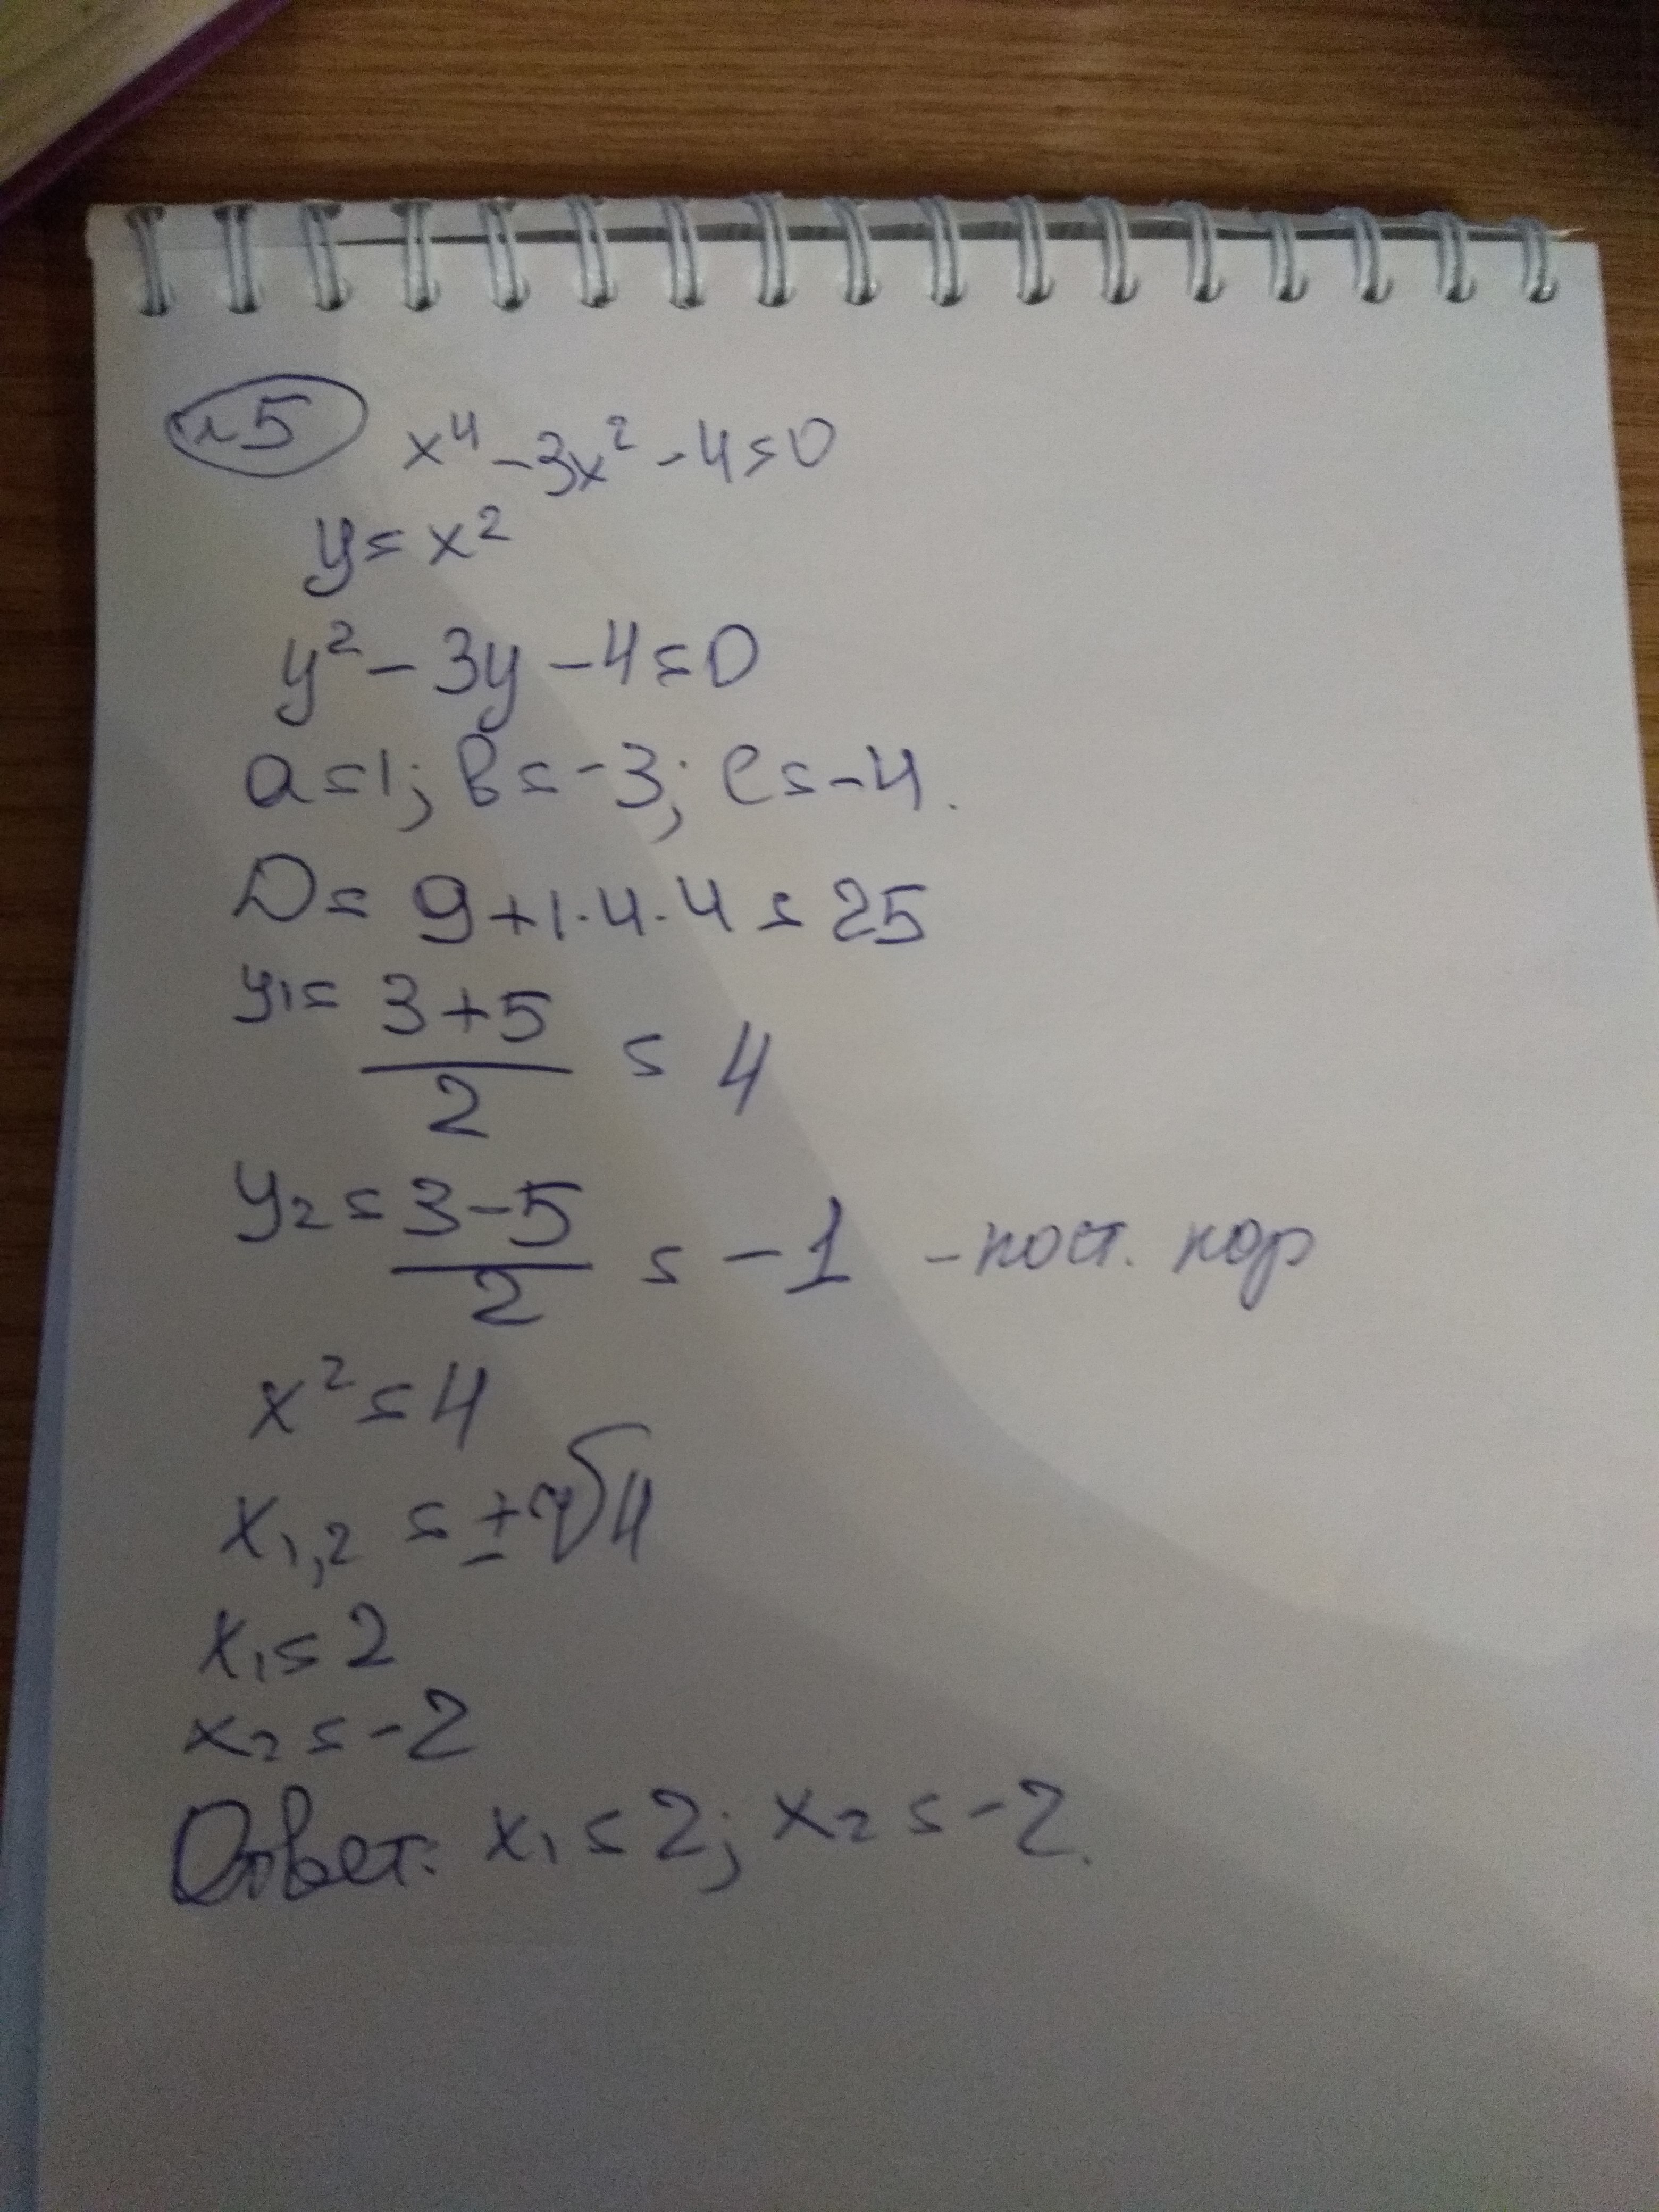 №5 x⁴ - 3x² - 4 = 0
y = x²
y² - 3y - 4 = 0
a = 1; b = -3; c = -4.
D = 9 + 1·4·4 = 25
y₁ = (3+5)/2 = 4
y₂ = (3-5)/2 = -1 - пост. кор
x² = 4
x₁,₂ = ±√4
x₁ = 2
x₂ = -2
Ответ: x₁ = 2; x₂ = -2.